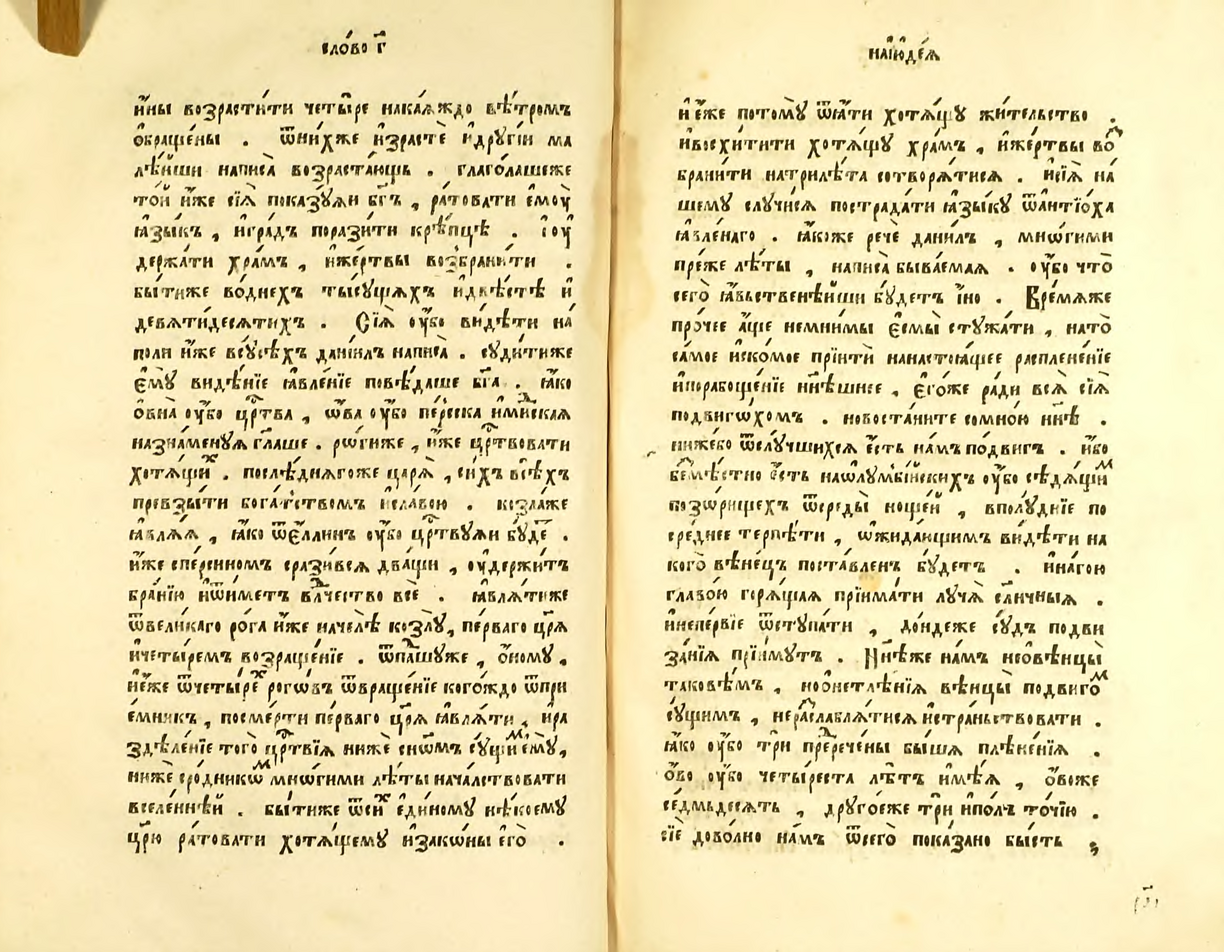 сло́во г҃
и҆ны возрасти́ти четы̑ре накаѧждо вѣ́тромъ
ѡ҆браще́ны . ѿни́хже и҆зрастѐ и҆дрꙋгі́и ма
лѣ́йши написа̀ возраста́ющь . глаго́лашеже
то́й и҆́же сїѧ̀ показꙋ́ѧи бг҃ъ , ра́товати є҆моу̀
ꙗ҆зы́къ , и҆гра́дъ порази́ти крѣ́пцѣ .
держа́ти хра́мъ , и҆же́ртвы возбрани́ти .
бы́тиже воднехъ ты́сѹщахъ и҆двѣстѣ̀ и҆
девѧти́десѧтихъ . Сїѧ̀ оу҆́бо ви́дѣти на
поли и҆́же всꙋ́сѣхъ данїи́лъ написа̀ . сꙋди́тиже
є҆мꙋ̀ видѣ́нїе ꙗ҆вле́нїе повѣ́даше бг҃а . ꙗ҆́ко
ѻ҆вна̀ оу҆́бо црⷭ҇тва , ѡ҆́ва оу҆́бо пе́рсска и҆ми́дскаѧ
назна́менꙋѧ гл҃аше . ро́гиже , и҆́же црⷭ҇твовати
хотѧ́щиⷯ . послѣ́днѧгоже царѧ̀ , си́хъ всѣ́хъ
превзы́ти бога́тствомъ и҆сла́вою . козла́же
ꙗ҆влѧ́ѧ , ꙗ҆́ко ѿє҆́ллинъ оу҆́бо црⷭ҇твꙋѧи бꙋ́де .
и҆́же спе́рсиномъ срази́всѧ два́щи , оу҆держи́тъ
бра́нїю и҆ѿи́метъ влⷣчество всѐ . ꙗ҆влѧ́тиже
ѿвели́каго ро́га и҆́же начелѣ̀ козлꙋ̀, пе́рваго цр҃ѧ
и҆четы́ремъ возраще́нїе . ѿпа́дшꙋже , ѻ҆́номꙋ ,
не́же ѿчеты́реⷯ рогѡ́въ ѿвраще́нїе кого́ждо ѿпрї
е́мникъ , посме́рти пе́рваго цр҃ѧ̀ ꙗ҆влѧ́ти , и҆ра
здѣле́нїе того̀ црⷭ҇твїѧ нижѐ сн҃ѡ́мъ сꙋ́щиⷨ є҆мꙋ̀,
нижѐ сро́дникѡⷨ мно́гими лѣ́ты нача́лствовати
вселе́ннѣй . бы́тиже ѿси́ⷯ є҆ди́номꙋ нѣ́коемꙋ
цр҃ю̀ ра́товати хотѧ́щемꙋ и҆зако́ны є҆гѡ̀ .
наїю҆де́ѧ
и҆є҆́же потомꙋ̀ ѿѧ́ти хотѧ́щꙋ жи́тельство .
и҆восхити́ти хотѧ́щꙋ хра́мъ , и҆же́ртвы во́
брани́ти натрилѣ́та сотворѧ́тисѧ . и҆сїѧ̀ на
шемꙋ слꙋчи́сѧ пострада́ти ꙗ҆зы́кꙋ ѿантїо́ха
ꙗ҆вле́наго . ꙗ҆́коже речѐ данїи́лъ , мно́гими
пре́же лѣ́ты , написа̀ быва́емаѧ . оу҆́бо что̀
сего̀ ꙗ҆́вьственѣйши бꙋ́детъ и҆́но . Вре́мѧже
про́чее а҆́ще немнимы̀ є҆смы̀ стꙋжа́ти , нато̀
са́мое и҆ско́мое прїитѝ нанастоѧ́щее расплене́нїе
и҆порабоще́нїе нн҃ѣшнее , є҆го́же ра́ди всѧ̀ сїѧ̀
подви́гохомъ . новоста́ните сомно́ю нн҃ѣ .
ниже́бо ѿслꙋ́чшихсѧ є҆́сть на́мъ по́двигъ . и҆́бо
безмѣ́стно є҆́сть наѡ҆лꙋмбі́йскихъ оу҆́бо сѣдѧ́щиⷨ
позо́рищехъ ѿсреды̀ но́щей , впола́днїе по
сре́днее терпѣ́ти , ѡ҆жида́ющимъ ви́дѣти на
кого̀ вѣне́цъ поста́вленъ бꙋ́детъ . и҆наго́ю
главо́ю горѧ́щаѧ прїима́ти лꙋча̀ сл҃нчныѧ .
и҆непе́рвїе ѿстꙋпа́ти , до́ндеже сꙋ́дъ подви
за́нїѧ прїи́мꙋтъ . Нн҃ѣже на́мъ нео҆вѣнцы̀
таковѣ́мъ , но о҆нетлѣ́нїѧ вѣ́нцы подвиго́ⷨ
сꙋ́щимъ , нераслаблѧ́тисѧ и҆стра́ньствовати .
ꙗ҆́ко оу҆́бо трѝ прⷣрече́ны бы́шѧ плѣне́нїѧ .
ѻ҆́во оу҆́бо четы́реста лѣ́тъ и҆мѣ́ѧ , ѻ҆во́же
се́дмьдесѧтъ , дрꙋго́еже трѝ и҆по́лъ то́чїю .
сїѐ дово́лно на́мъ ѿсего̀ пока́зано бы́сть ;